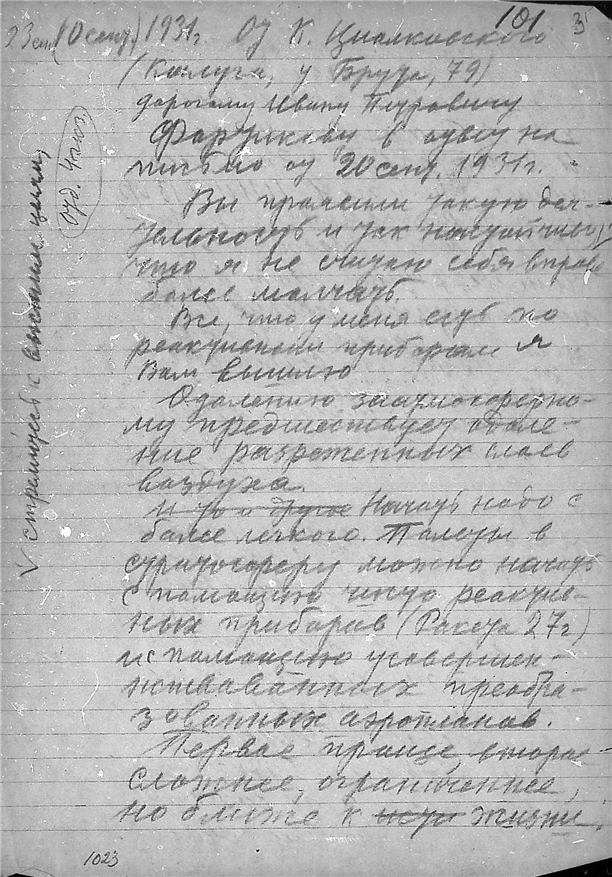 101 3
23 сент (10 сент.) 1931г. От К. Циолковского
(Калуга, у Брута, 79)
дорогому Ивану Петровичу
Фортикову в ответ на
письмо от 20 сент. 1931г.
Вы проявили такую дея-
тельность и так настойчивы,
что я не считаю себя вправе
более молчать.
Все, что у меня есть по
реактивным приборам я
Вам вышлю
Одолению заатмосферно-
му предшествует одоле-
ние разреженных слоев
воздуха.
и то и другое Начать надо с
более легкого. Полеты в
стратосферу можно начать
с помощию чисто реактив-
ных приборов (Ракета 27г)
и с помощию усовершен-
ствованных преобра-
зованных аэропланов.
Первое проще, второе
сложнее, ограниченнее,
но ближе к жизни,
V стремитесь с высокими целями,
1023